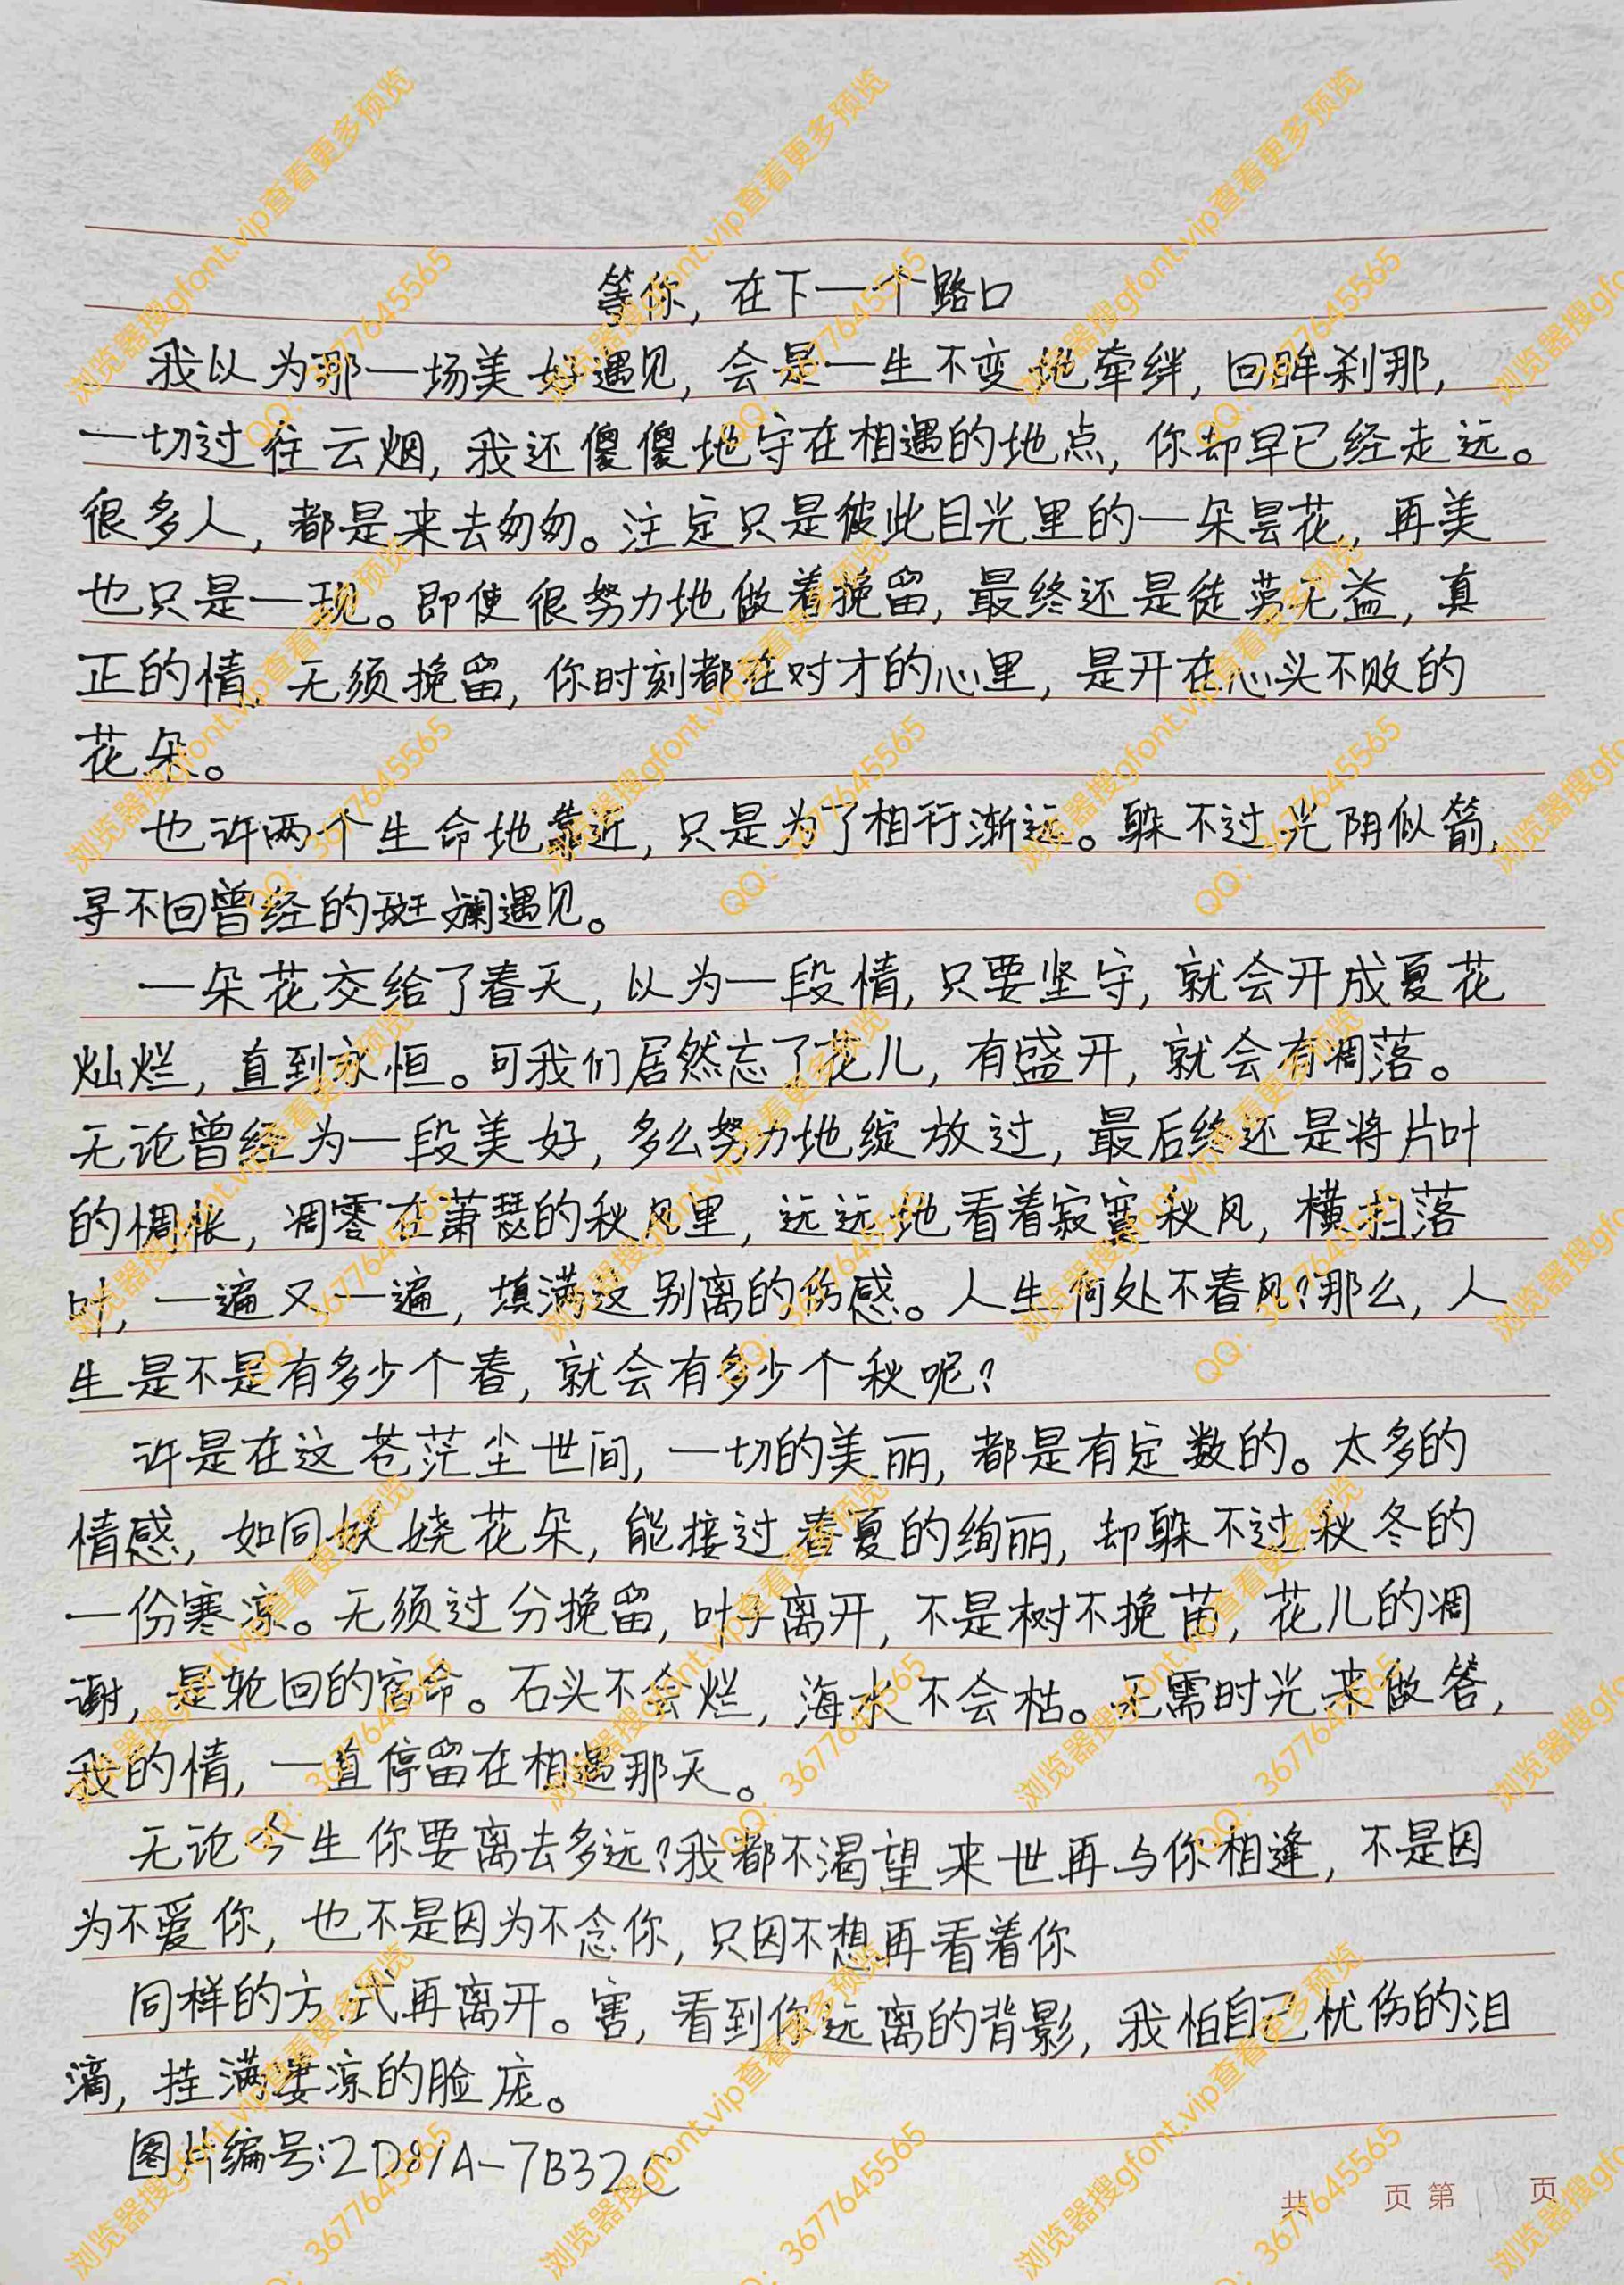 等你，在下一个路口
我以为那一场美好遇见，会是一生不变地牵绊，回眸刹那，
一切过往云烟，我还傻傻地守在相遇的地点，你却早已经走远。
很多人，都是来去匆匆。注定只是彼此目光里的一朵昙花，再美
也只是一现。即使很努力地做着挽留，最终还是徒劳无益，真
正的情，无须挽留，你时刻都在对才的心里，是开在心头不败的
花朵。
也许两个生命地靠近，只是为了相行渐远。躲不过光阴似箭，
寻不回曾经的斑斓遇见。
一朵花交给了春天，以为一段情，只要坚守，就会开成夏花
灿烂，直到永恒。可我们居然忘了花儿，有盛开，就会有凋落。
无论曾经为一段美好，多么努力地绽放过，最后终还是将片叶
的惆怅，凋零在萧瑟的秋风里，远远地看着寂寞秋风，横扫落
叶，一遍又一遍，填满这别离的伤感。人生何处不春风？那么，人
生是不是有多少个春，就会有多少个秋呢？
许是在这苍茫尘世间，一切的美丽，都是有定数的。太多的
情感，如同妖娆花朵，能接过春夏的绚丽，却躲不过秋冬的
一份寒凉。无须过分挽留，叶子离开，不是树不挽苗，花儿的凋
谢，是轮回的宿命。石头不会烂，海水不会枯。无需时光来做答，
我的情，一直停留在相遇那天。
无论今生你要离去多远？我都不渴望来世再与你相逢，不是因
为不爱你，也不是因为不念你，只因不想再看着你
同样的方式再离开。害，看到你远离的背影，我怕自己忧伤的泪
滴，挂满凄凉的脸庞。
图片编号：2D81A-7B32C
共 页 第 页
浏览器搜gfont.vip查看更多预览
QQ：3677645565